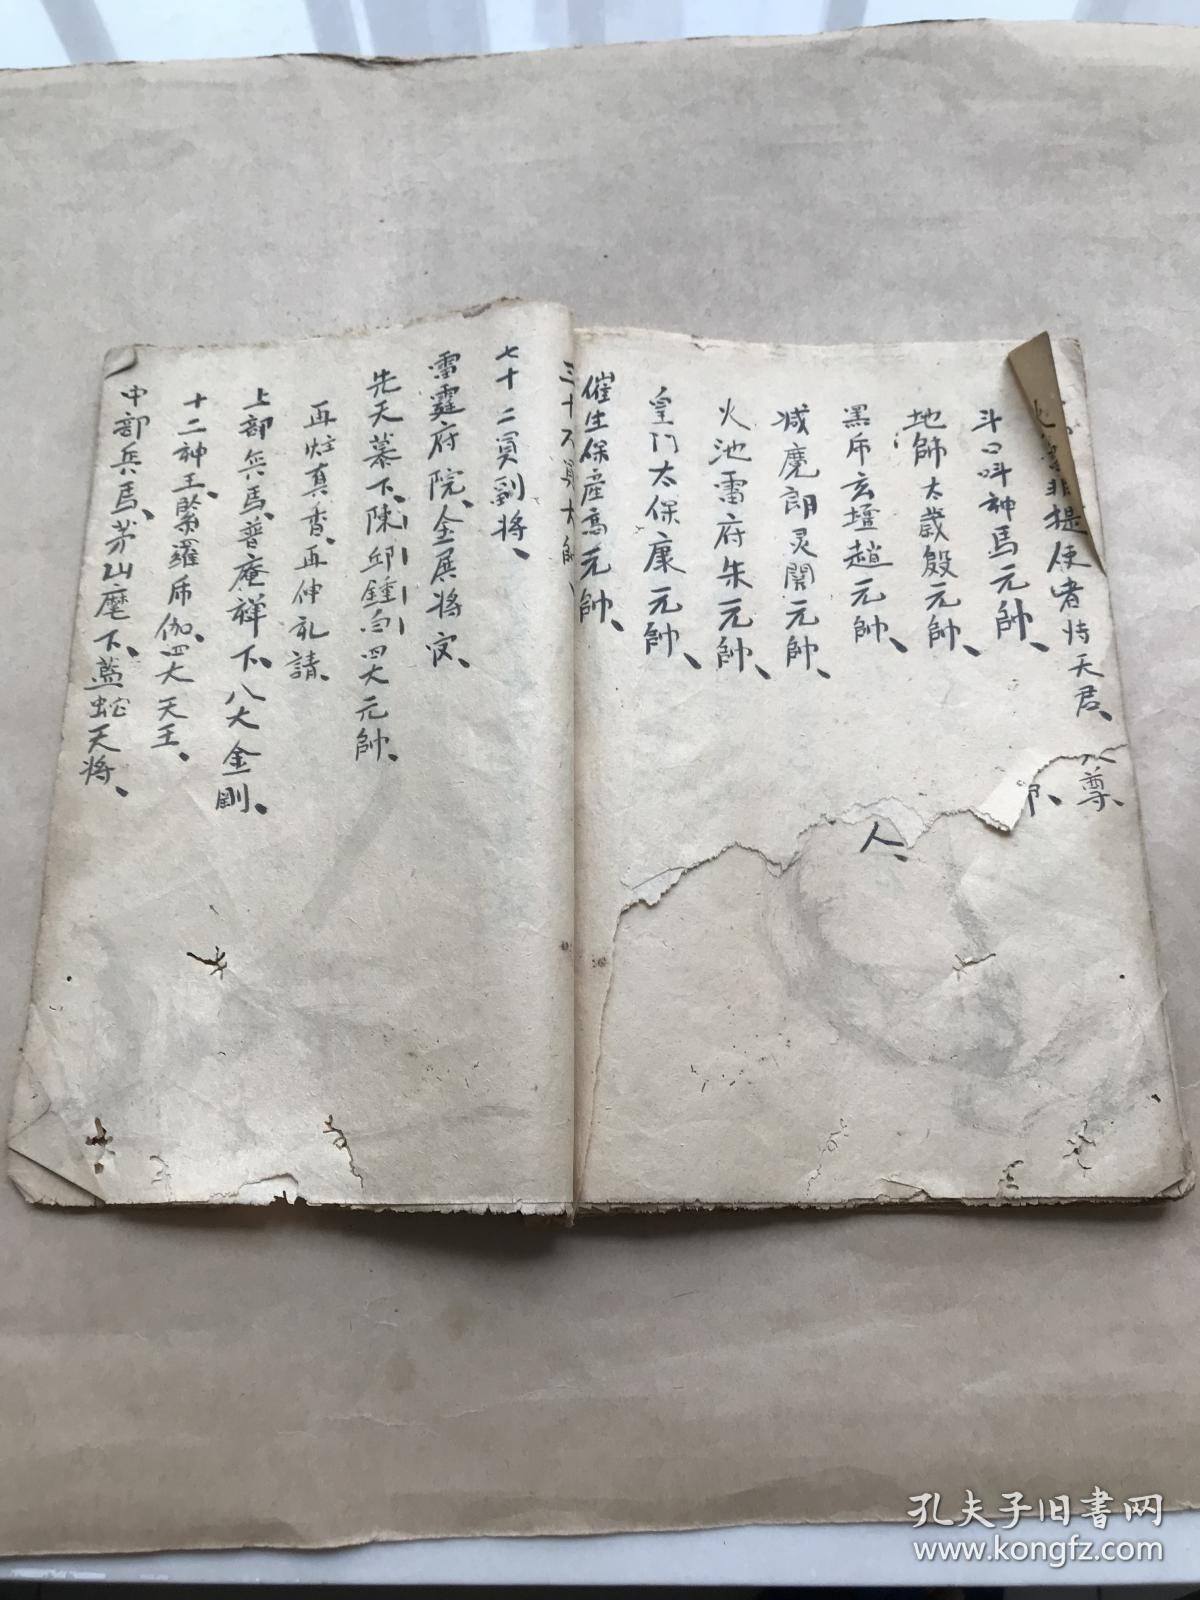 使者恃天君、
尊、
斗口呌神馬元帥、
地師太歲殷元帥、
黑帍玄壇趙元帥、
人、
滅魔朗灵関元帥、
火池雷府朱元帥、
皇門太保康元帥、
催生保産高元帥、
三十
七十二員副将、
雷霆府院、全展将
先天慕下、陳邱鍾 四大元帥、
再炷真香、再伸礼請、
上部兵馬、普庵禅下、八大金剛、
十二神王、緊羅帍伽、四大天王、
中部兵馬、茅山麾下、藍蛇天将、
孔夫子旧書网
www.kongfz.com